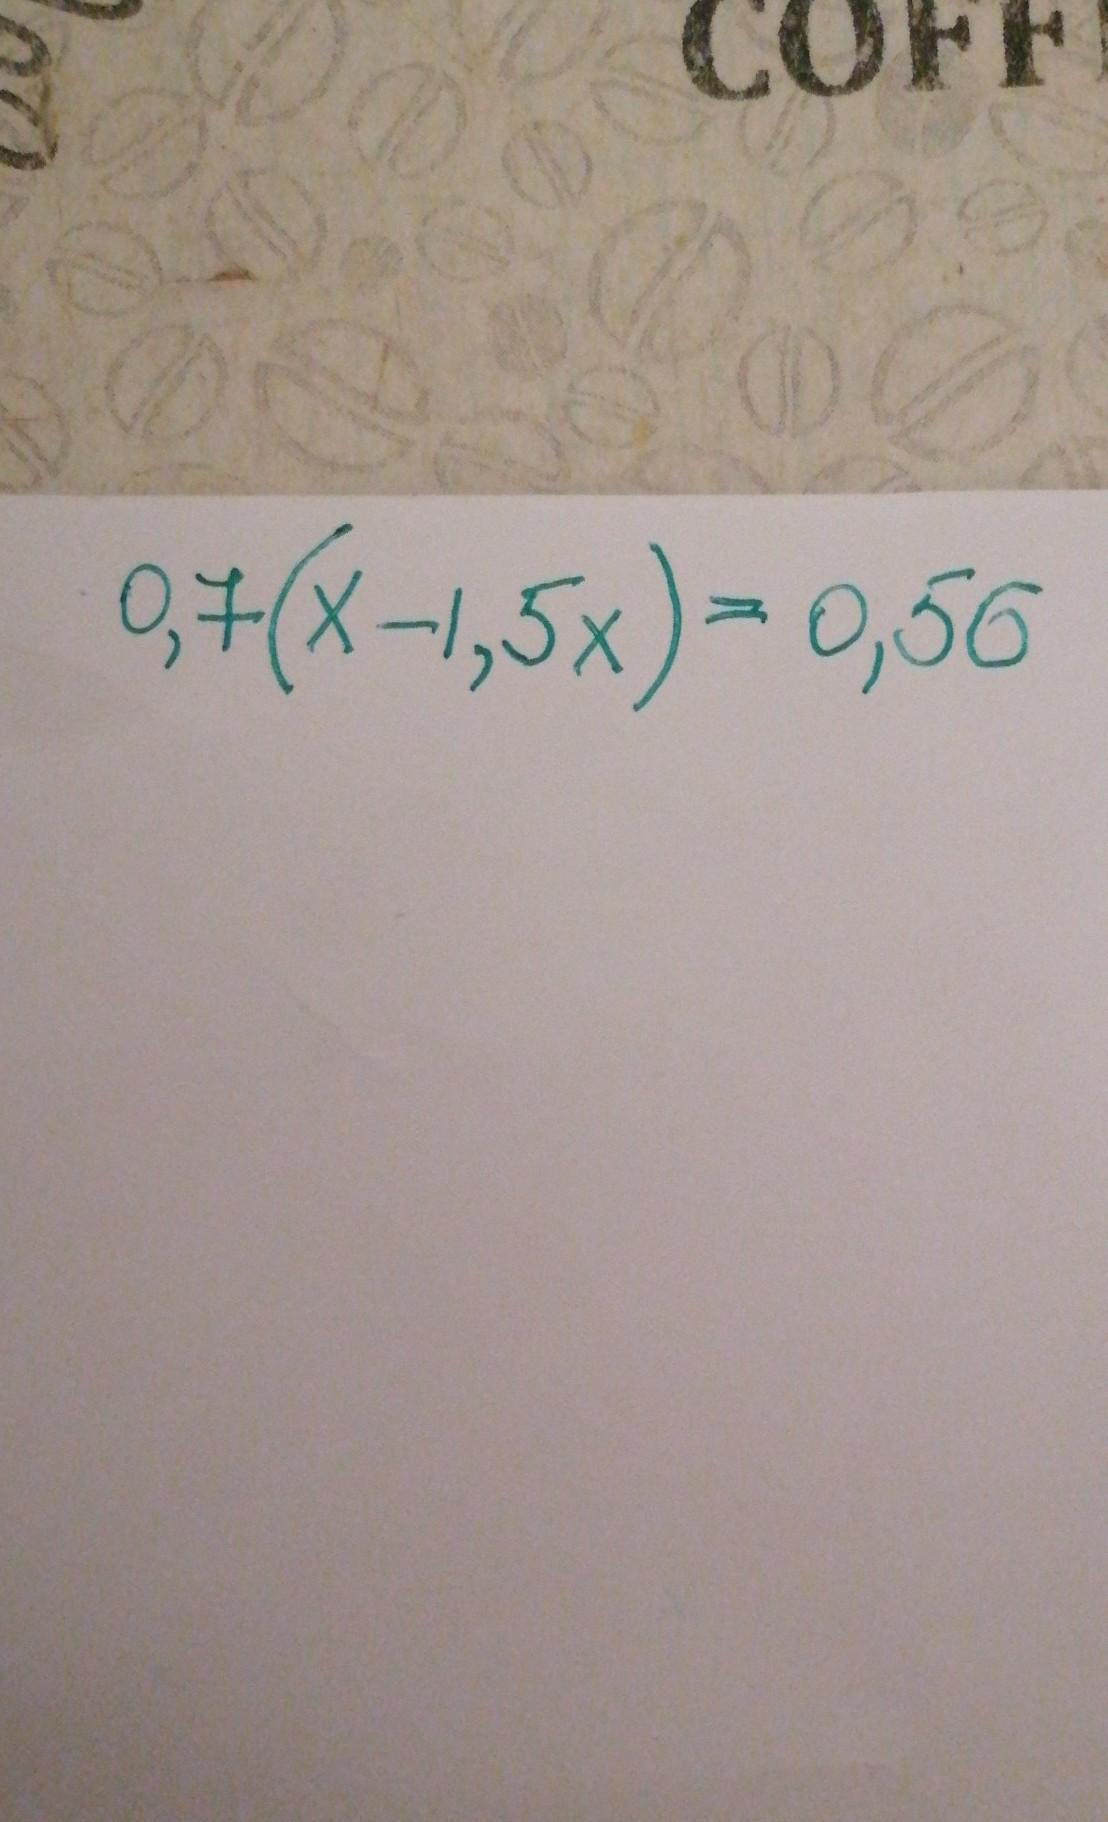 COFF
0,7(x-1,5x)=0,56